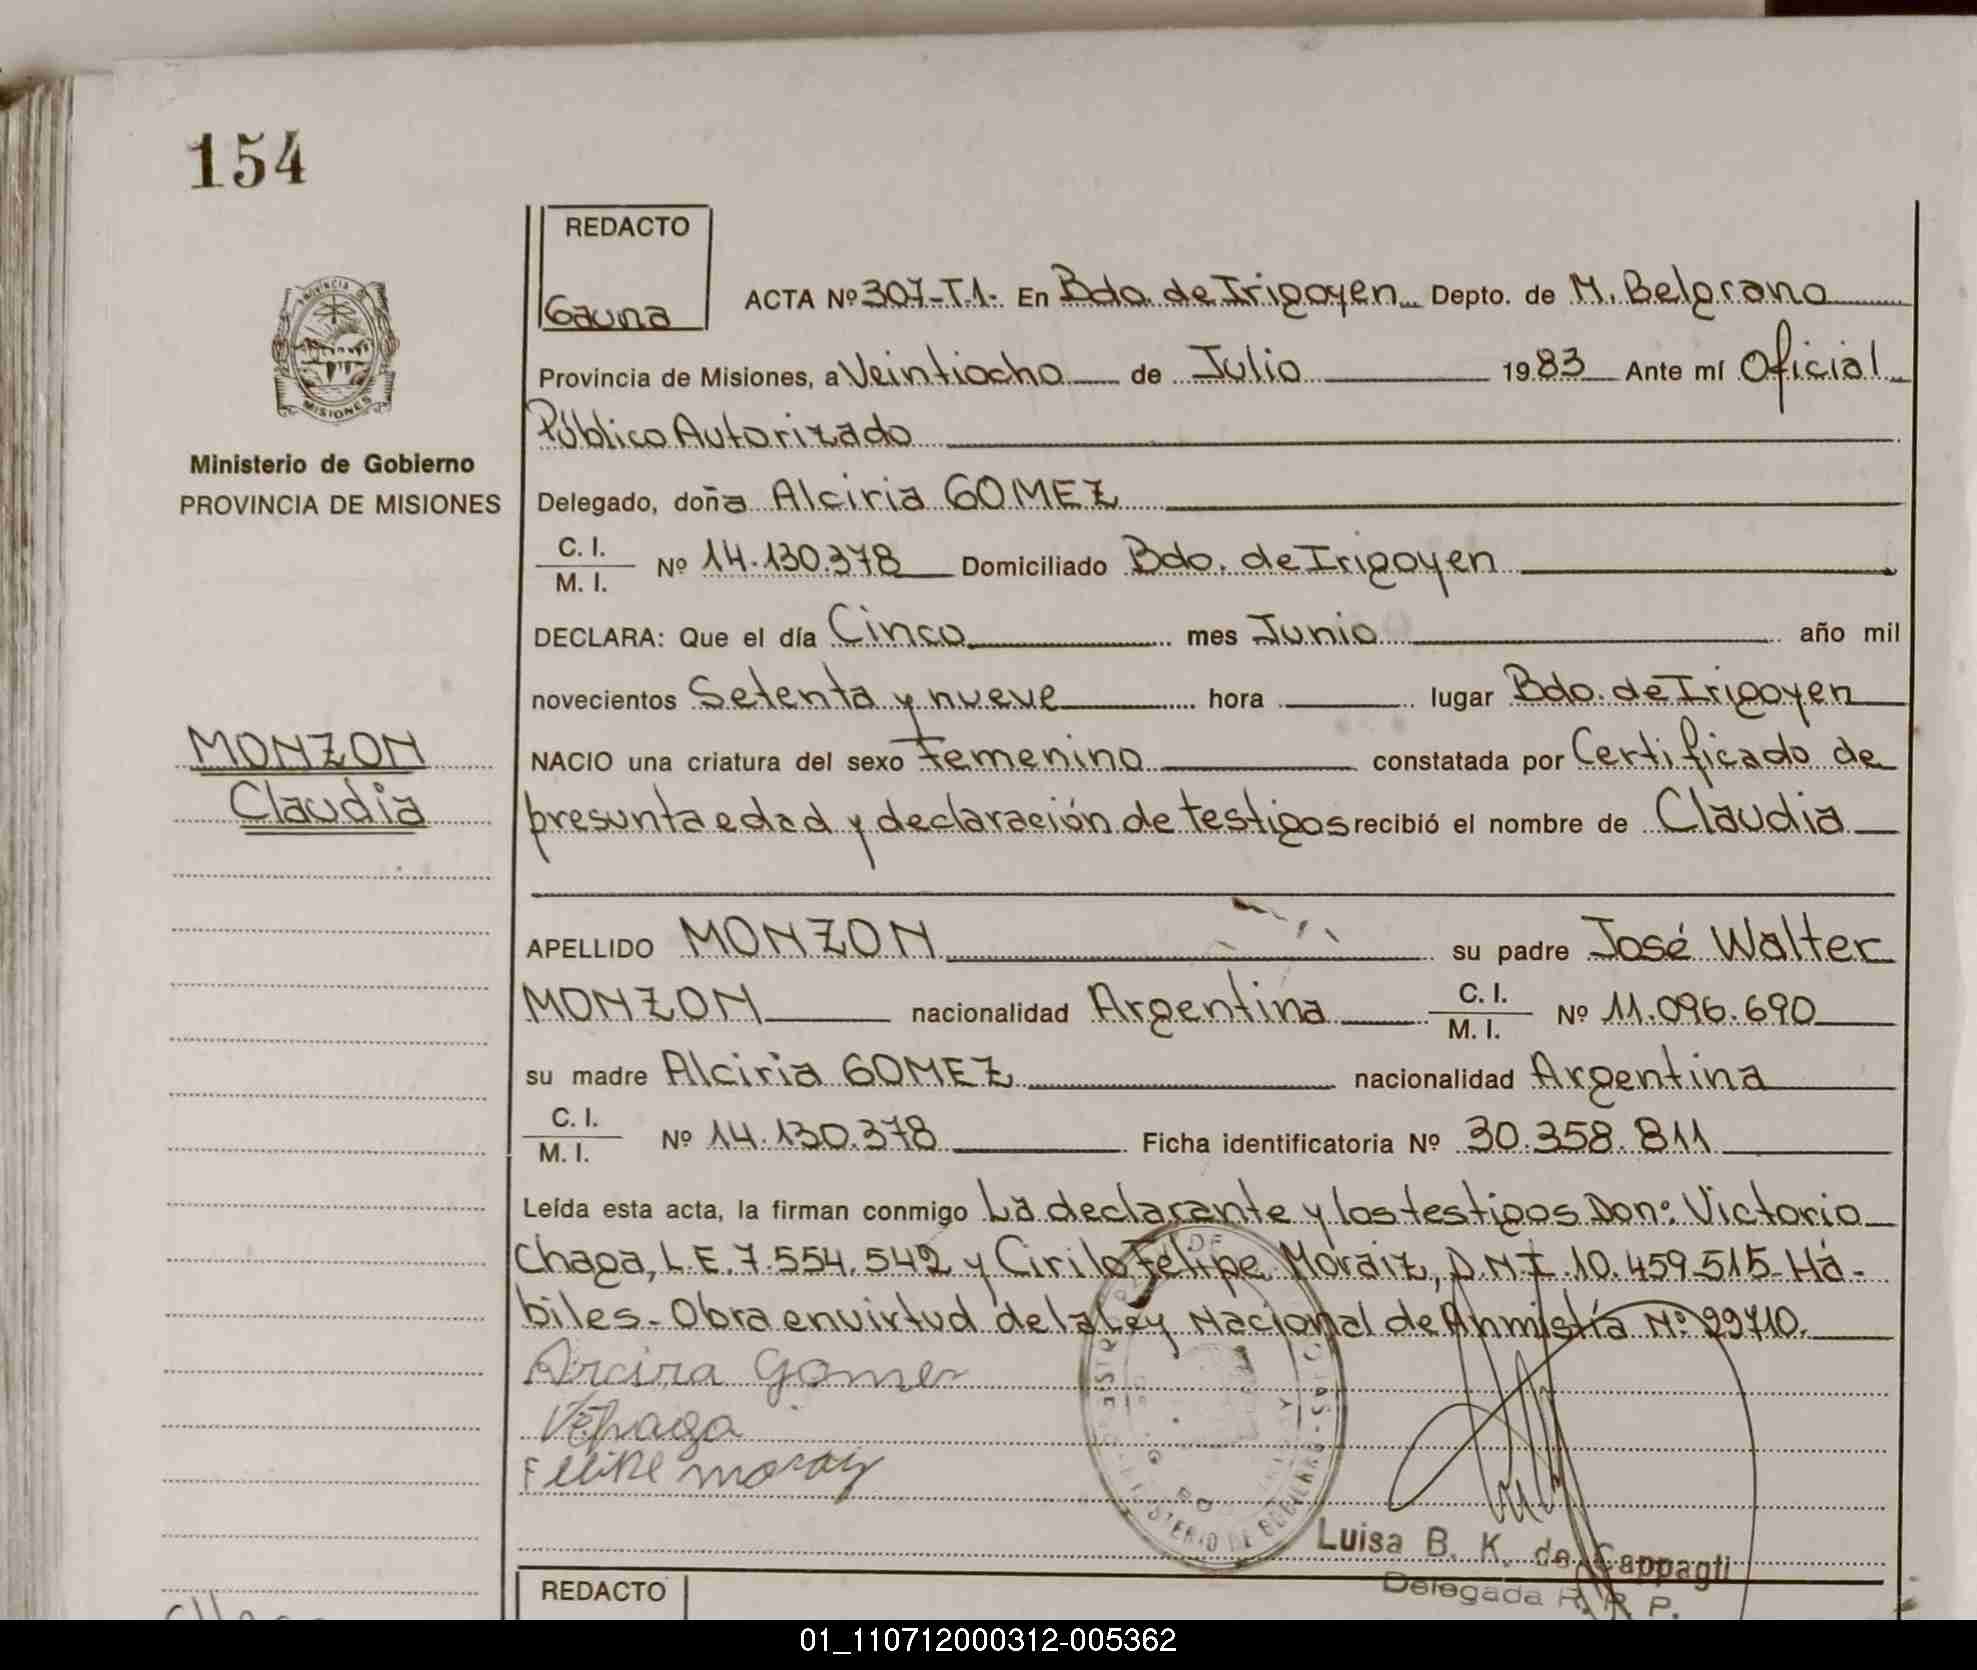 154
REDACTO
Gauna
ACTA Nº 307-T.1- En Bdo. de Irigoyen Depto. de M. Belgrano
Provincia de Misiones, a Veintiocho de Julio 1983 Ante mí Oficial
Público Autorizado
Ministerio de Gobierno
PROVINCIA DE MISIONES
Delegado, doña Alciria GOMEZ
C. I.
M. I. Nº 14.130.378 Domiciliado Bdo. de Irigoyen
DECLARA: Que el día Cinco mes Junio año mil
novecientos Setenta y nueve hora lugar Bdo. de Irigoyen
MONZON
Claudia
NACIO una criatura del sexo Femenino constatada por Certificado de
presunta edad y declaración de testigos recibió el nombre de Claudia
APELLIDO MONZON su padre José Walter
MONZON nacionalidad Argentina C. I. M. I. Nº 11.096.690
su madre Alciria GOMEZ nacionalidad Argentina
C. I.
M. I. Nº 14.130.378 Ficha identificatoria Nº 30.358.811
Leída esta acta, la firman conmigo La declarante y los testigos Don: Victorio
Chaga, L.E. 7.554.542 y Cirilo Felipe Moraiz, D.N.I. 10.459.515- Há-
biles- Obra en virtud de la Ley Nacional de Anmistía Nº 22710.
Arcira Gomez
VChaga
Felipe moraiz
MINISTERIO DE GOBIERNO
Luisa B. K. de Cappagli
Delegada R. P. P.
REDACTO
01_110712000312-005362